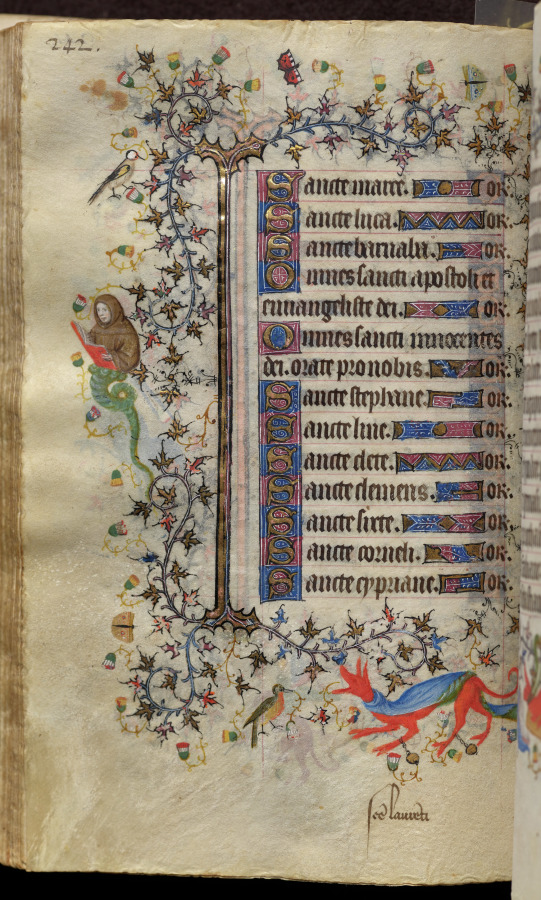 242.
Sancte marce. OR.
Sancte luca. OR.
Sancte barnaba. OR.
Omnes sancti apostoli et
euuangeliste dei. OR.
Omnes sancti innocentes
dei. orate pro nobis. OR.
Sancte stephane. OR.
Sancte line. OR.
Sancte clete. OR.
Sancte clemens. OR.
Sancte sixte. OR.
Sancte corneli. OR.
Sancte cypriane. OR.
sce laureti